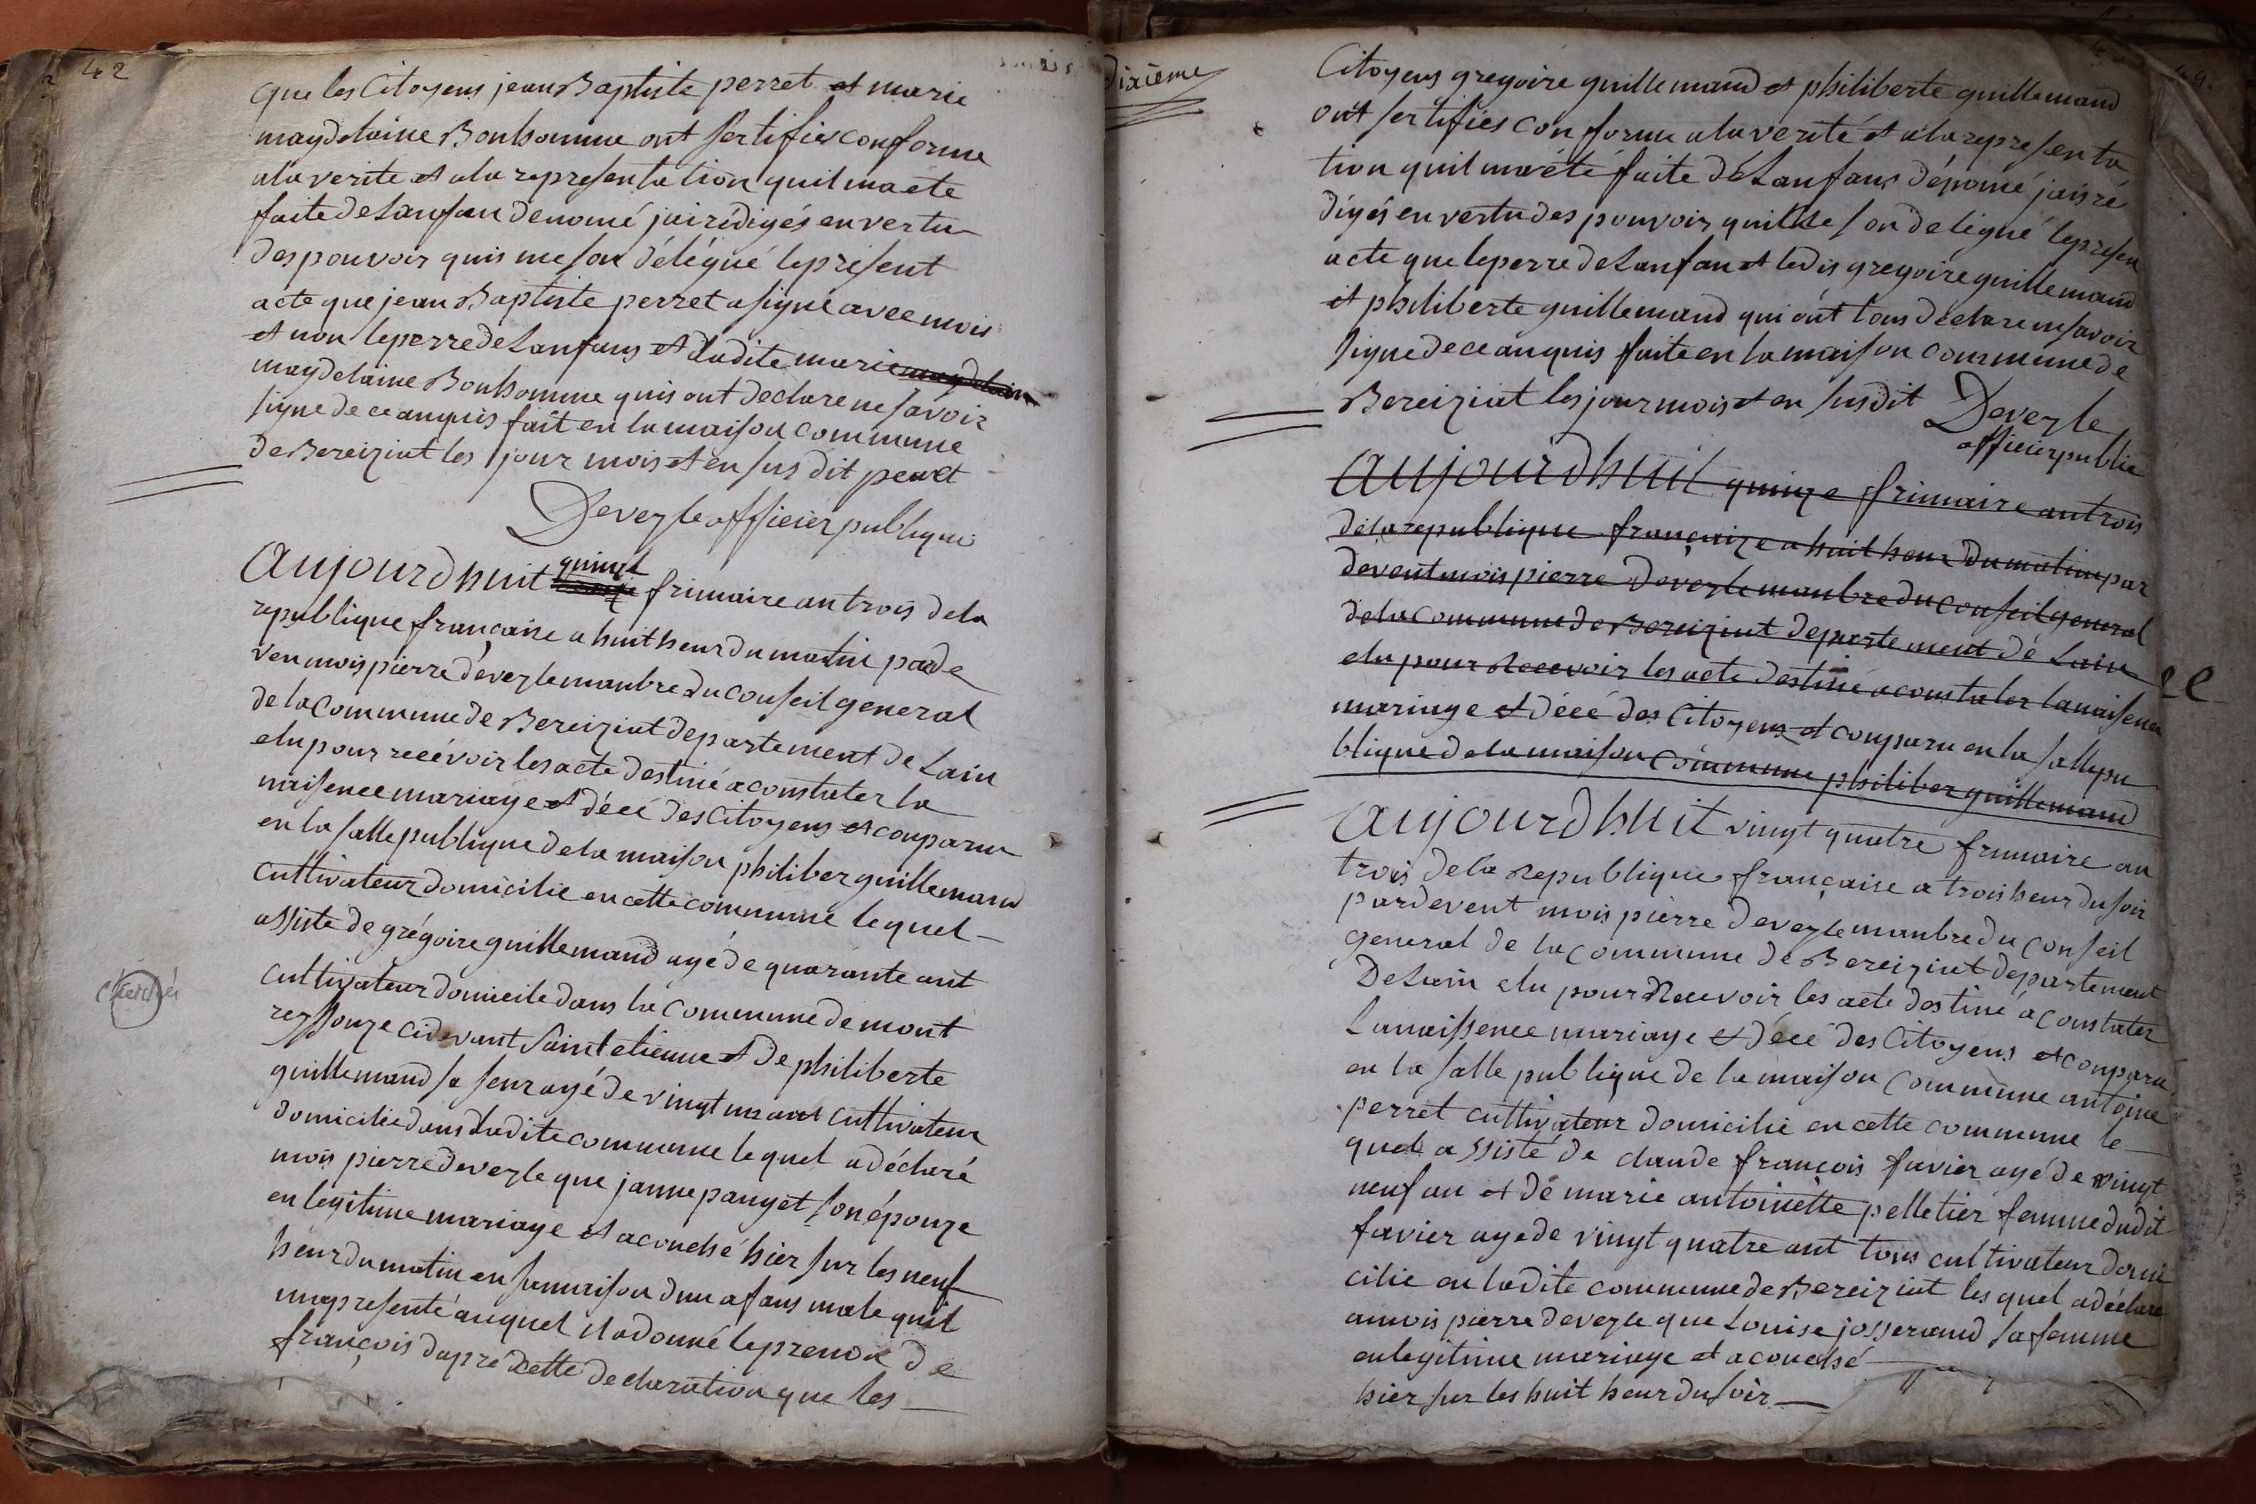 42
que les Citoyens jean Baptiste perret et marie
magdelaine Bonhomme ont sertifier conforme
a la verite et a la representation quil ma ete
faite de Lanfan denomé jai rédigés en vertu
des pouvoir quis me son délégué le présent
acte que jean Baptiste perret a signe avec mois
et non le perre de Lanfans et Ladite marie magdelaine
magdelaine Bonhomme quis ont declare ne savoir
signe de ce anquis fait en la maison commune
de Bereiziat les jour mois et en sus dit perret
Deveyle officier publique
Aujourdhuit quinze frimaire an trois de la
republique française a huit heur du matin par de
ven mois pierre deveyle manbre du conseil general
de la commune de Bereiziat departement de Lain
elu pour recévoir les acte destiné a constater la
naisence mariage et décé des Citoyens et conparu
en la salle publique de la maison philiber guillemand
cultivateur domicilie en cette commune lequel
assiste de grégoire guillemand agé de quarante ant
cultivateur domicile dans la commune de mont
reyssouze cidevant saint etienne et de philiberte
guillemand sa seur agé de vingt un ant cultivateur
domicilie dans Ladite commune le quel a déclaré
mois pierre deveyle que janne panget son épouze
en legitime mariage et acouché hier sur les neuf
heur du matin en sa maison dun afans male quil
ma presenté auquel il a donné le prenon de
françois dapre cette declaration que les
dixieme
49.
Citoyens gregoire guillemand et philiberte guillemand
ont sertifies conforme a la verité et a la represen ta
tion quil ma été faite dé Lanfans dénomé jais ré
digés en vertu des pouvoir quil me son deligné le presen
acte que le perre de Lanfan et ledis gregoire guillemand
et philiberte guillemand qui ont tous déclare ne savoir
signe de ce anquis faite en la maison commune de
Bereiziat les jour mois et en susdit Deveyle
officier public
Aujourdhuit quinze frimaire an trois
de la republique françaize a huit heur du matin par
devent mois pierre Deveyle manbre du conseil general
de la commune de Bereiziat departement dé Lain
elu pour Recevoir les acte destiné a constater la naisence
mariage et décé des Citoyens et conparu en la salle pu
blique de la maison commune philiber guillemand
Aujourdhuit vingt quatre frimaire an
trois de la Republique française a trois heur du soir
pardevent mois pierre deveyle manbre du conseil
general de la commune de Bereiziat departement
De Lain elu pour Recevoir les acte destiné a constater
La naissence mariage et décé des Citoyens et conparu
en la salle publique de la maison commune antoine
perret cultivateur domicilie en cette commune le
quel assisté de claude françois favier agé de vingt
neuf an et de marie antoinette pelletier femme dudit
favier age de vingt quatre ant tous cultivateur domi
cilie en ladite commune de Bereiziat les quel a declare
a mois pierre deveyle que Louise josserand sa femme
en legitime mariage et acouché
hier sur les huit heur du soir